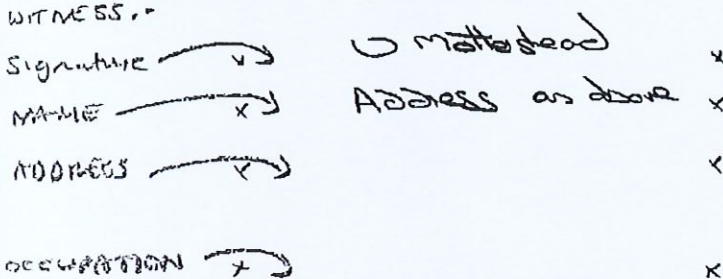 WITNESS.
Signature x J Mottershead x
NAME x Address as above x
ADDRESS x x
OCCUPATION x x